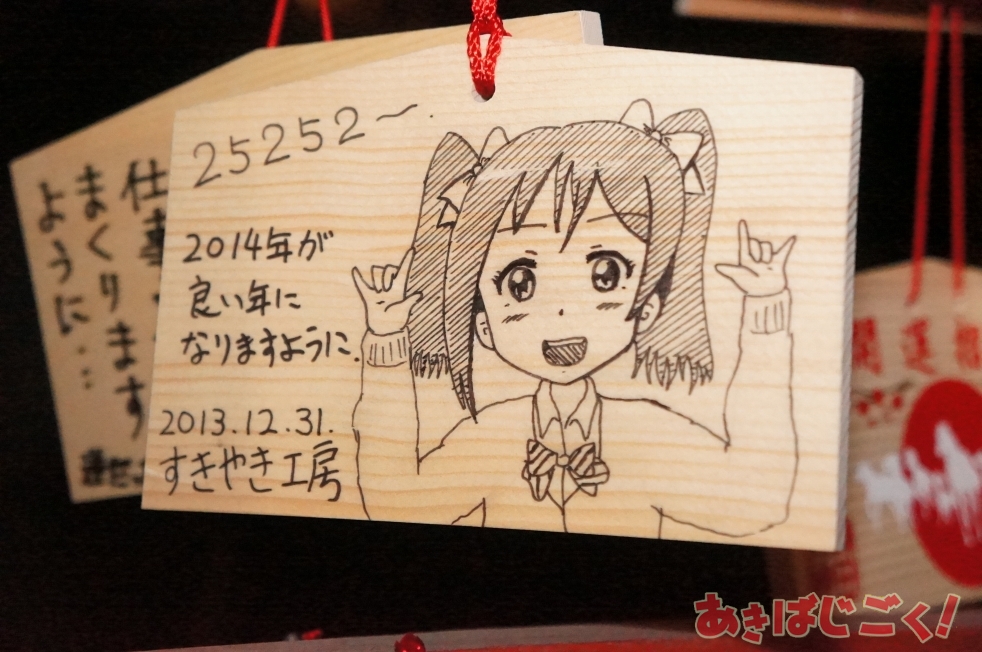 25252〜.
2014年が
良い年に
なりますように.
2013.12.31.
すきやき工房
仕事
まくります
ように…
開運招
あきばじごく!